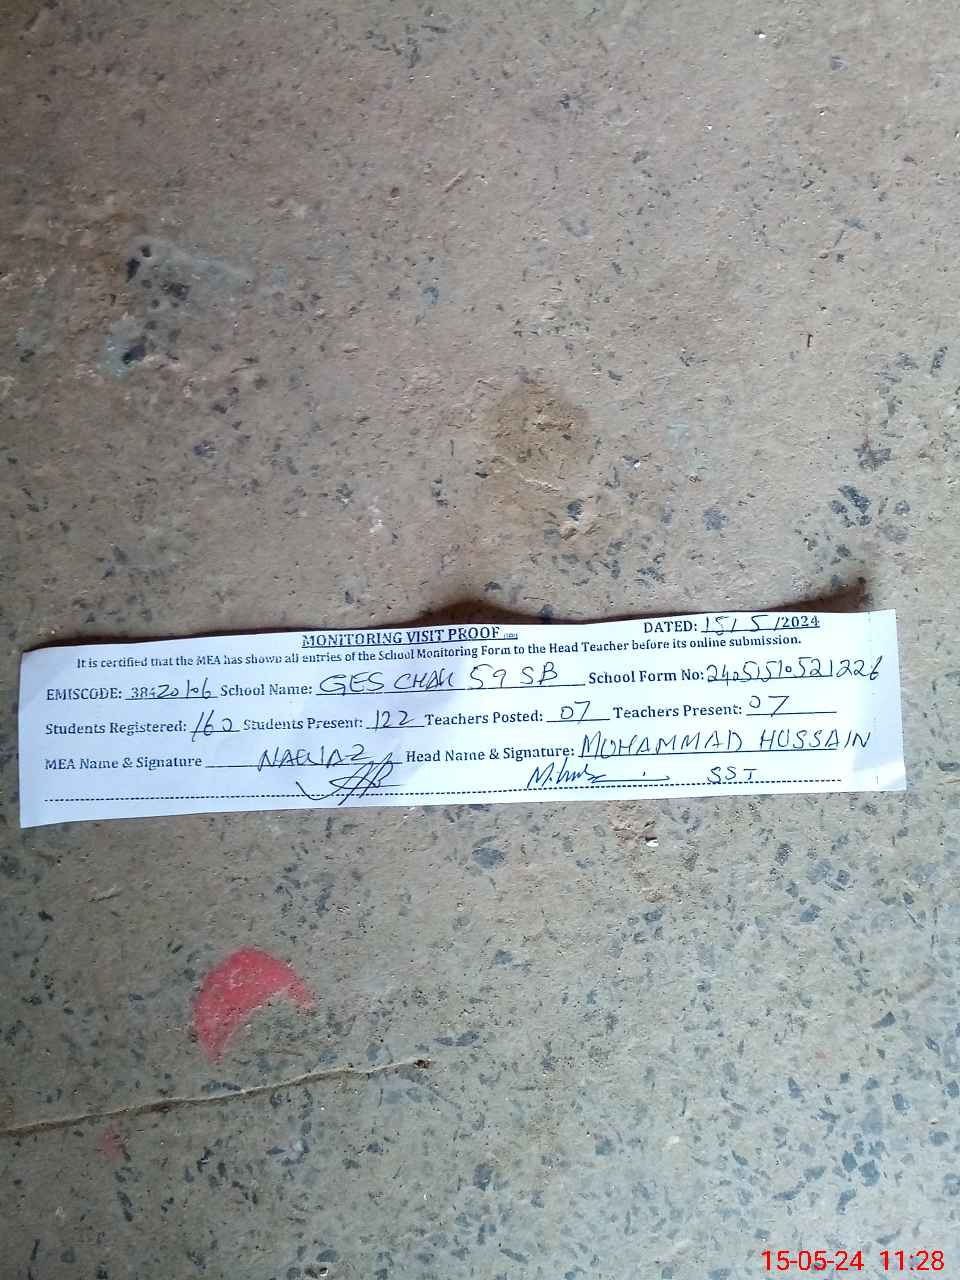 MONITORING VISIT PROOF
DATED: 15/5/2024
It is certified that the MEA has shown all entries of the School Monitoring Form to the Head Teacher before its online submission.
EMISCODE: 38420106 School Name: GES CHAK 59 SB School Form No: 2405151051226
Students Registered: 160 Students Present: 122 Teachers Posted: 07 Teachers Present: 07
MEA Name & Signature NAWAZ Head Name & Signature: MUHAMMAD HUSSAIN
SST
15-05-24 11:28